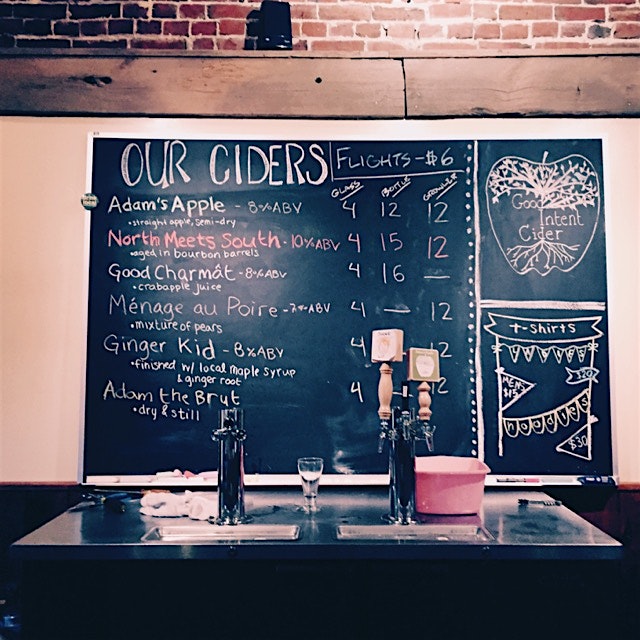 OUR CIDERS
FLIGHTS - $6
GLASS BOTTLE GROWLER
Adam's Apple - 8% ABV 4 12 12
• straight apple, semi-dry
North Meets South - 10% ABV 4 15 12
• aged in bourbon barrels
Good Charmât - 8% ABV 4 16 —
• crabapple juice
Ménage au Poire - 7% ABV 4 — 12
• mixture of pears
Ginger Kid - 8% ABV 4 12
• finished w/ local maple syrup
& ginger root
Adam the Brut 4 — 12
• dry & still
Good
Intent
Cider
t-shirts
MEN'S
$15
$20
hoodies
$30